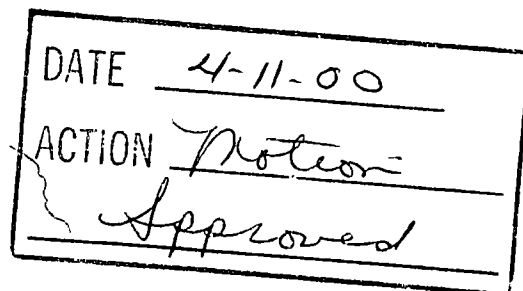 DATE 4-11-00
ACTION Motion
Approved